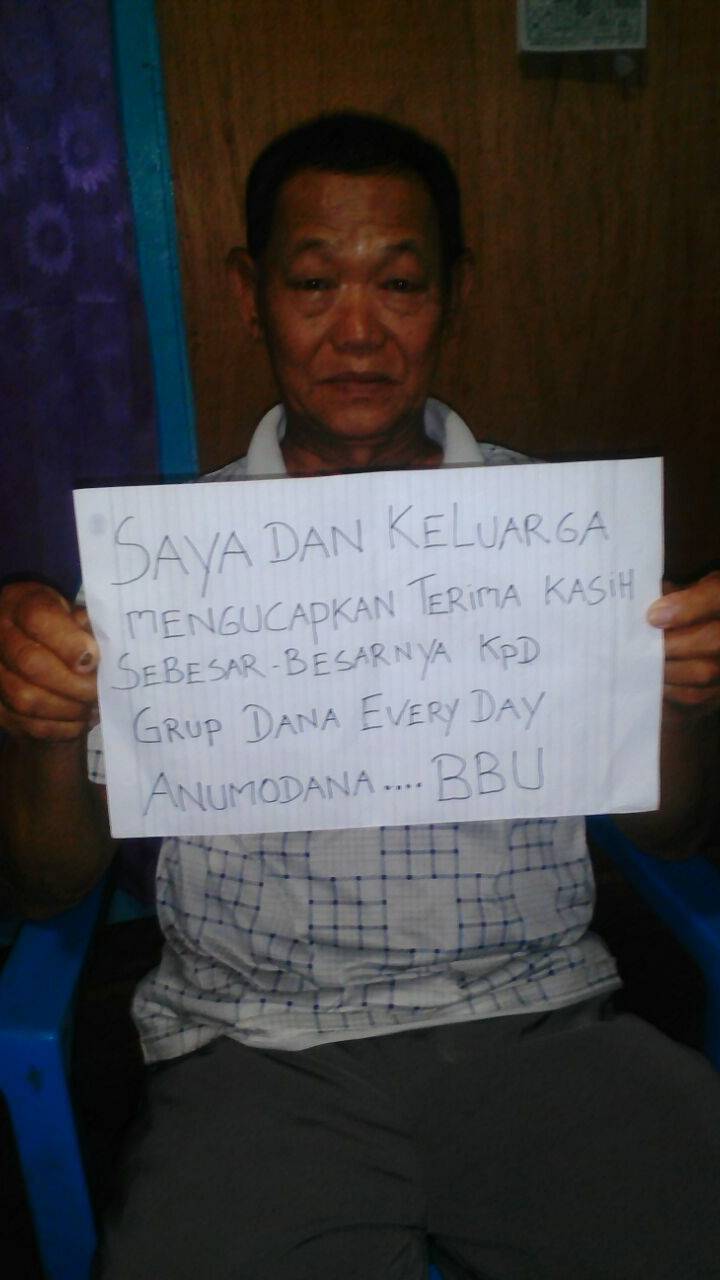 SAYA DAN KELUARGA
MENGUCAPKAN TERIMA KASIH
SEBESAR-BESARNYA KPD
GRUP DANA EVERY DAY
ANUMODANA.... BBU